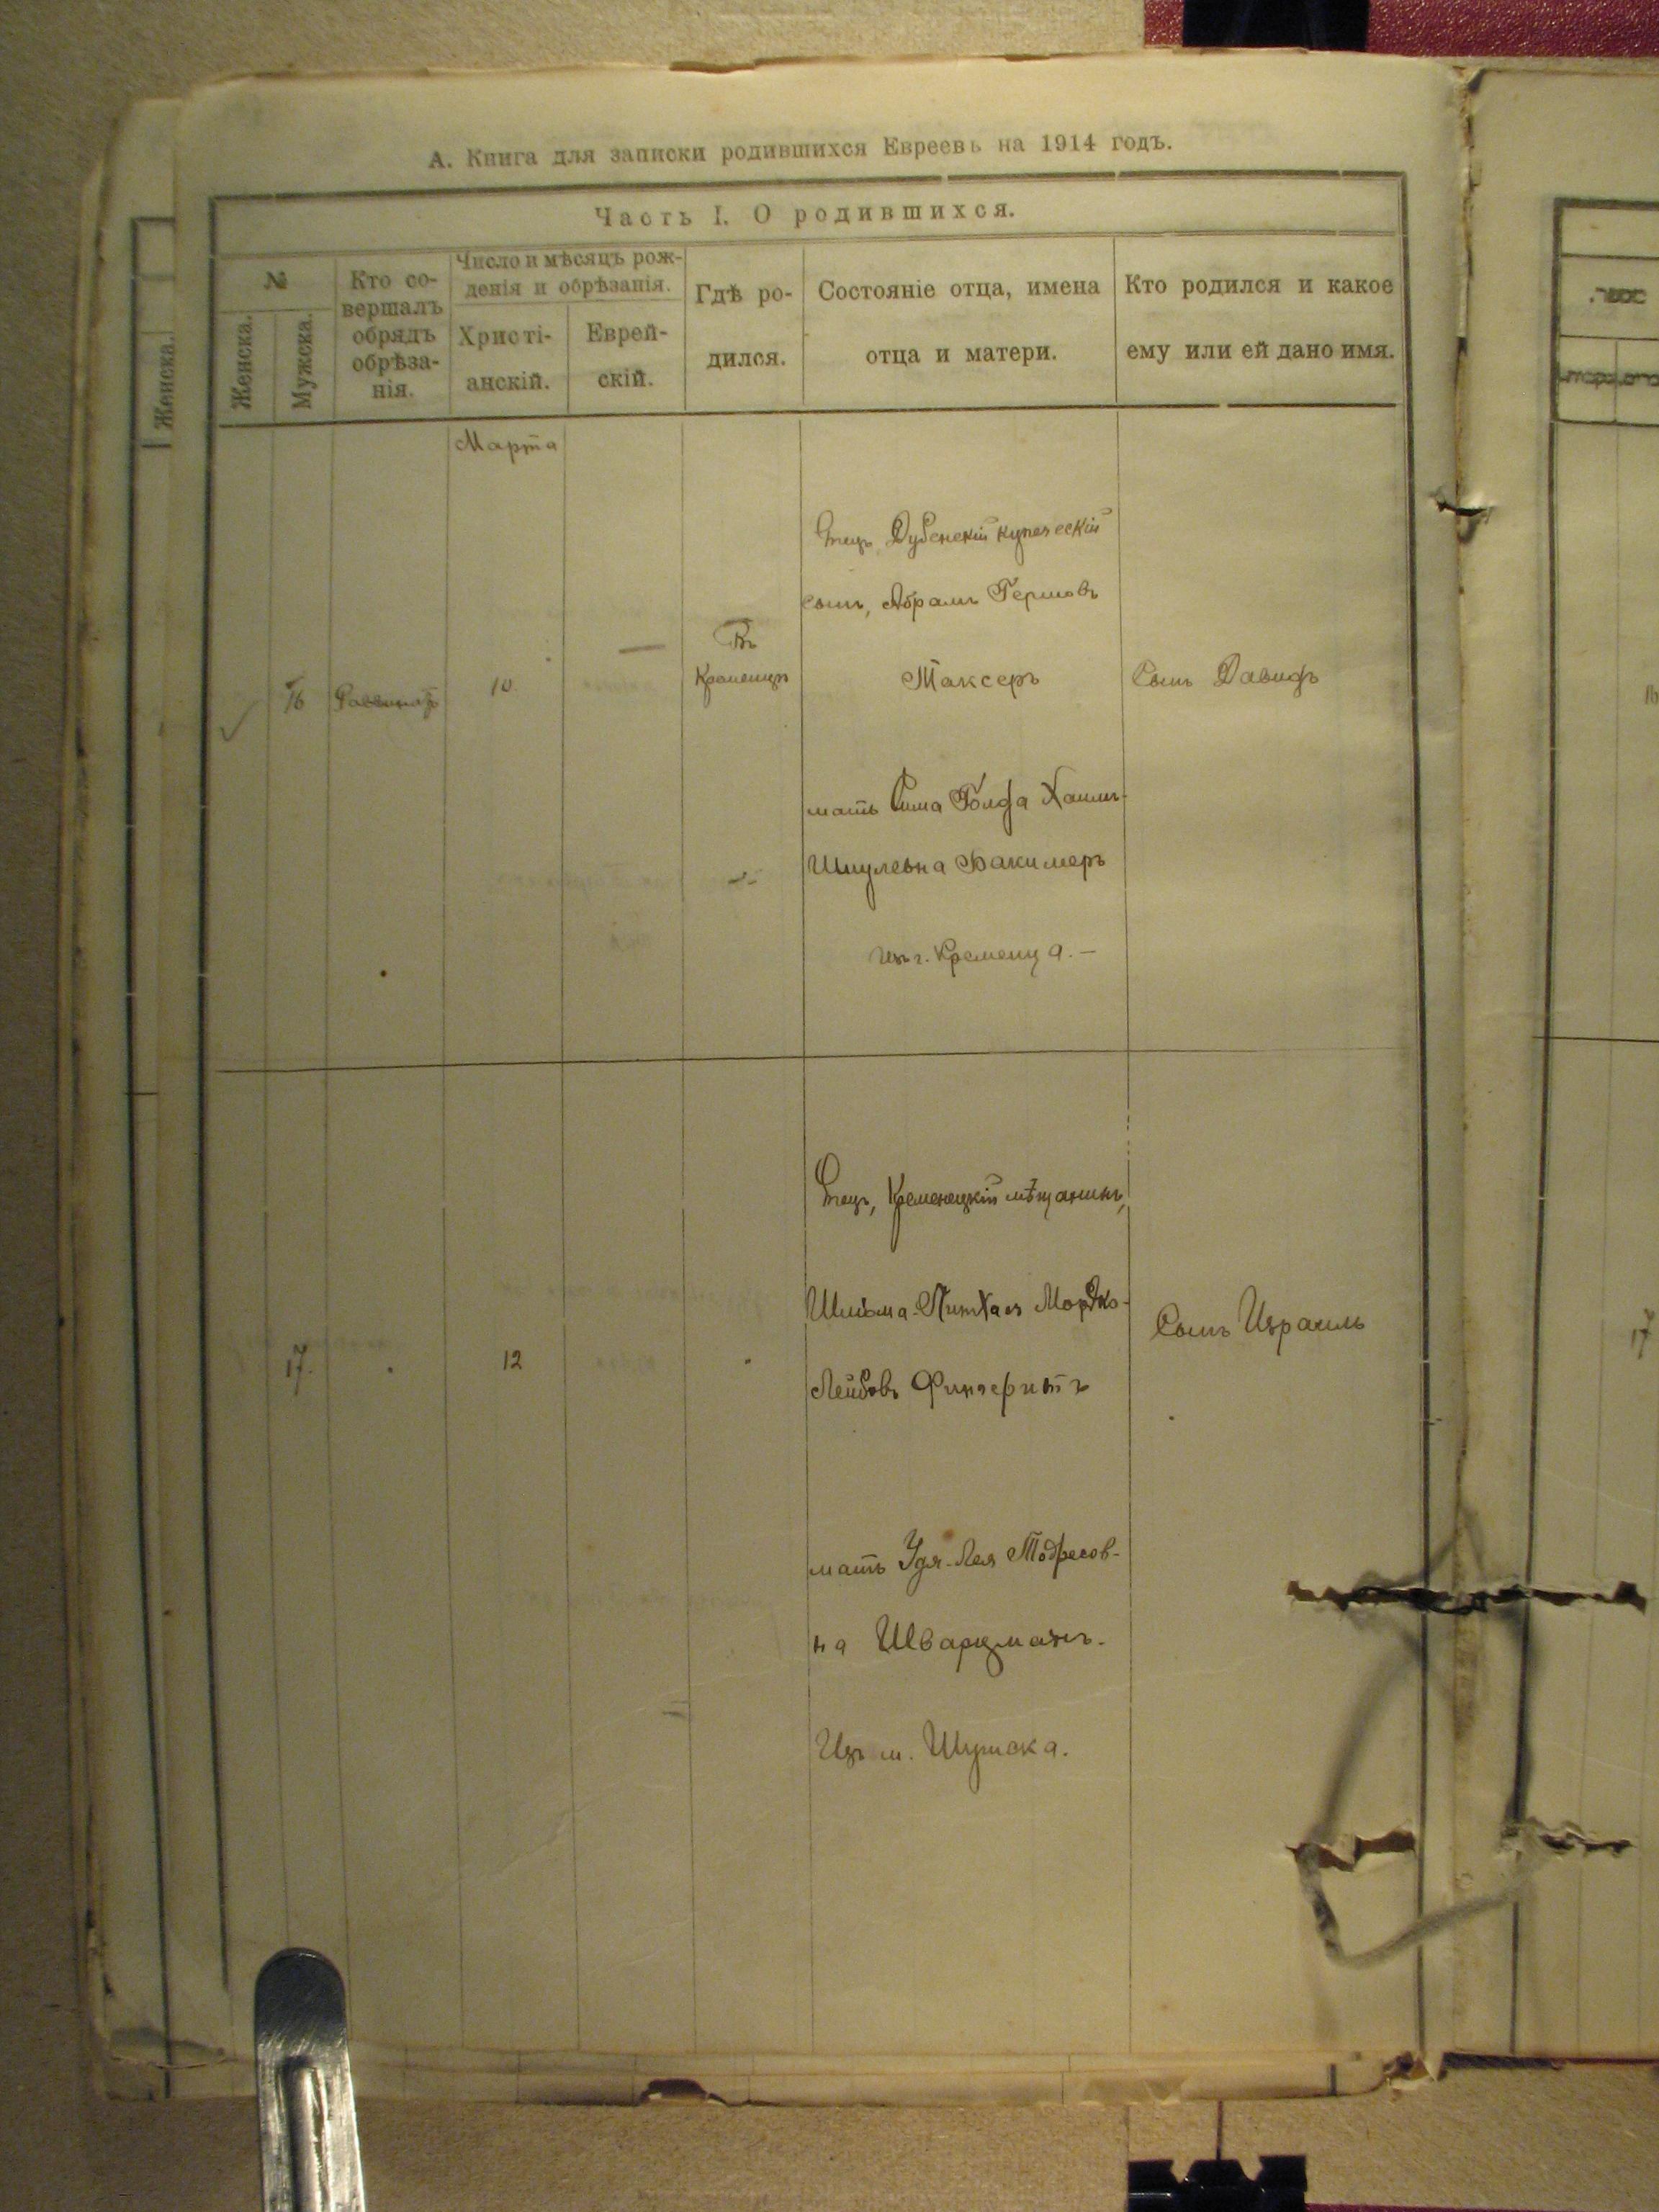 А. Книга для записки родившихся Евреевъ на 1914 годъ.
Часть I. О родившихся.
№
Женска.
Мужска.
Кто со-
вершалъ
обрядъ
обрѣза-
нія.
Число и мѣсяцъ рож-
денія и обрѣзанія.
Христі-
анскій.
Еврей-
скій.
Гдѣ ро-
дился.
Состояніе отца, имена
отца и матери.
Кто родился и какое
ему или ей дано имя.
Женска.
Марта
16
10
—
Въ
Кременцѣ
Отецъ Дубенскій купеческій
сынъ, Абрамъ Гершовъ
Таксеръ
мать Сима Голда Хаимъ-
Шмулевна Бакимеръ
изъ г. Кременца. —
Сынъ Давидъ
17.
12
Отецъ, Кременецкій мѣщанинъ,
Шліома-Пинхасъ Мордко-
Лейбовъ
мать Удя-Лея Тодресов-
на Шварцманъ.
Изъ м. Шумска.
Сынъ Израиль
17